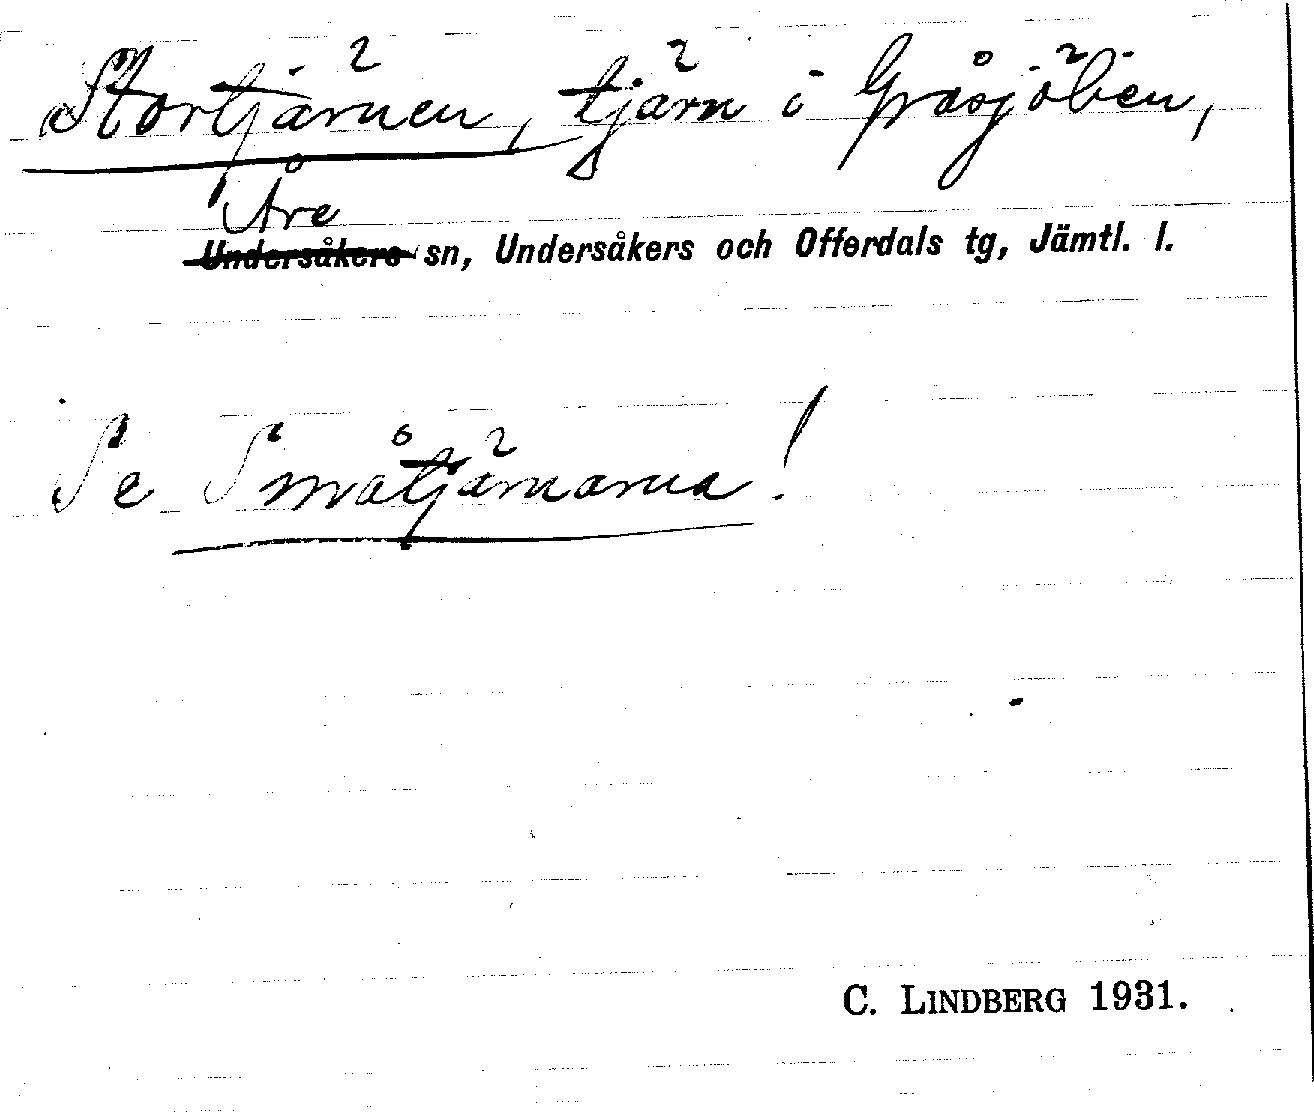 Stortjärnen, tjärn i Gråsjöbien,
Åre
Undersåkers sn, Undersåkers och Offerdals tg, Jämtl. l.
Se Småtjärnarna!
C. LINDBERG 1931.